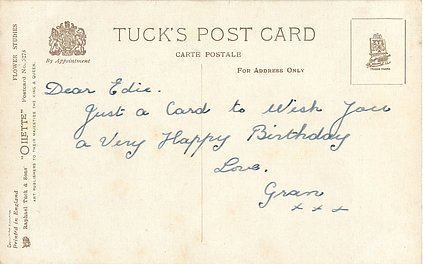 TUCK'S POST CARD
CARTE POSTALE
FOR ADDRESS ONLY
By Appointment
TRADE MARK
Dear Edie.
Just a Card to Wish You
a Very Happy Birthday
Love.
Gran
x x x
FLOWER STUDIES
"OILETTE" Postcard No.
ART PUBLISHERS TO THEIR MAJESTIES THE KING & QUEEN.
Raphael Tuck & Sons'
Printed in England